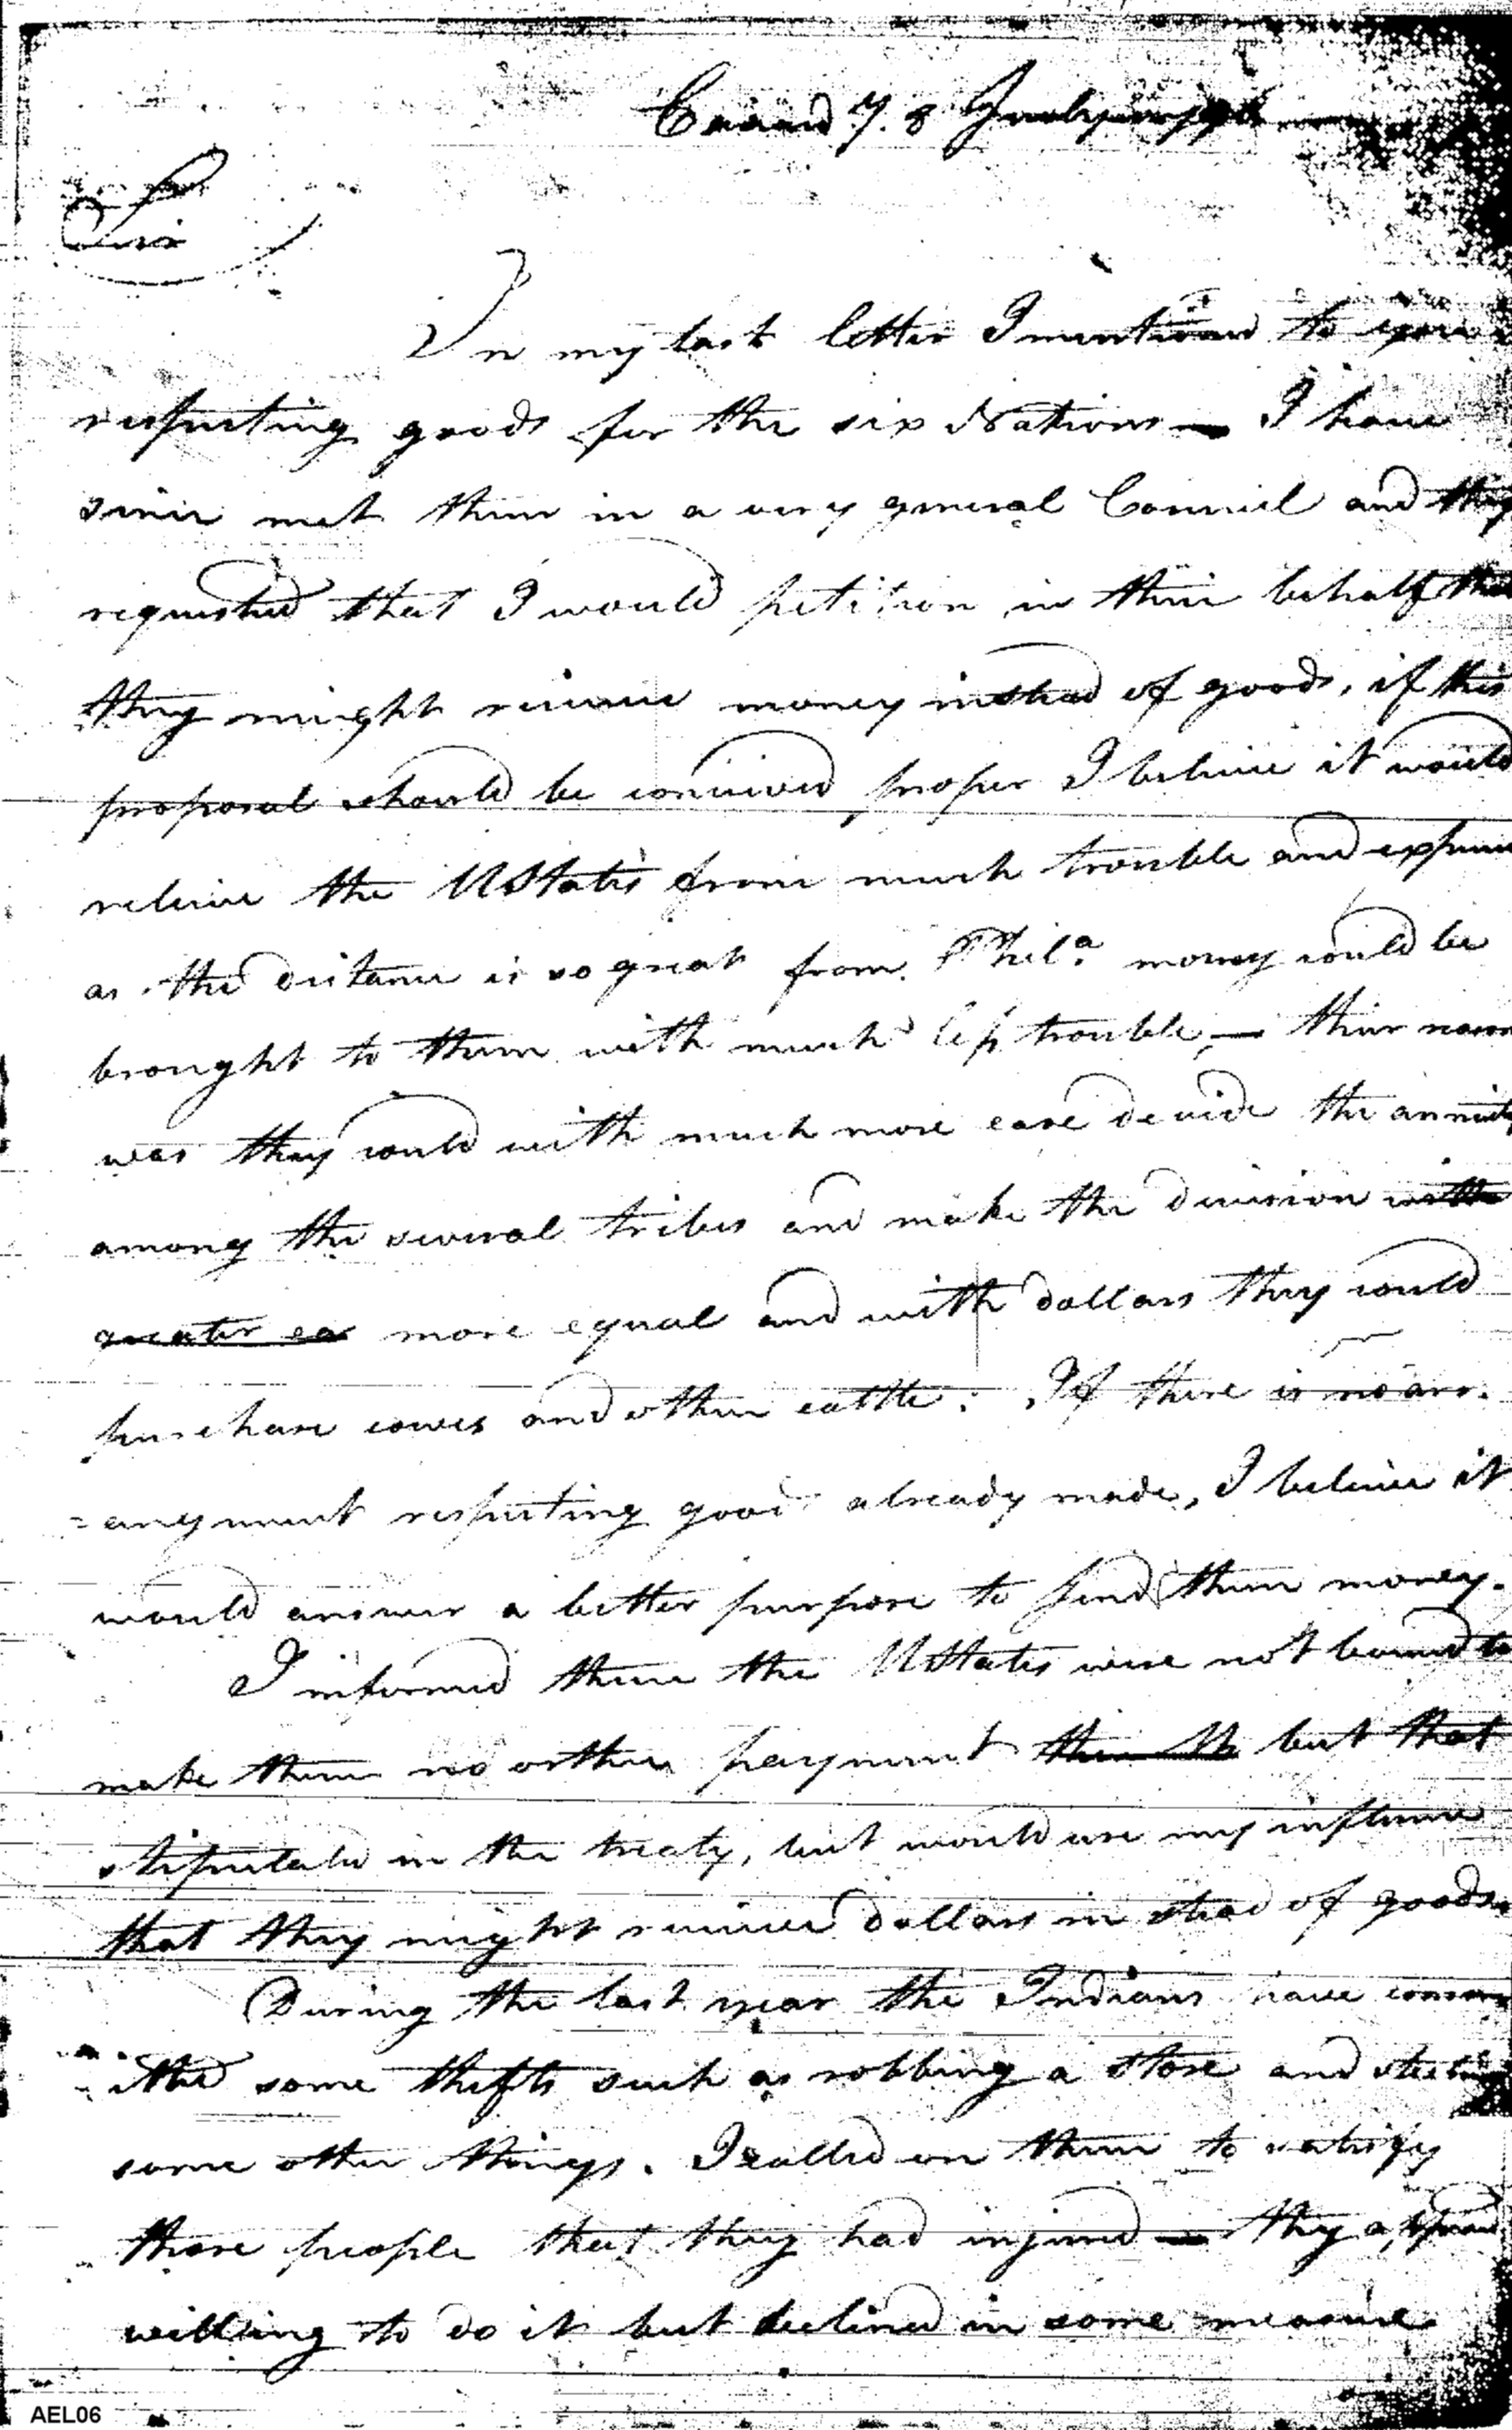 Sir
In my last letter I mentioned to you
respecting goods for the six Nations — I have
since met them in a very general Council and they
requested that I would petition in their behalf that
they might receive money instead of goods, if this
proposal should be conceived proper I believe it would
relieve the UStates from much trouble and expence
as the distance is so great from Phil.a money could be
brought to them with much less trouble, — their reason
was they could with much more ease devide the annuity
among the several tribes and make the division with
greater ea more equal and with dollars they could
purchase cowes and other cattle. If there is no arr.
=angement respecting goods already made, I believe it
would answer a better purpose to send them money.
I informed them the UStates were not bound to
make them no other payment then th but that
stipulated in the treaty, but would use my influence
that they might receive dollars in stead of goods.
During the last year the Indians have comm
=itted some thefts such as robbing a store and stealing
some other things. I called on them to satisfy
those people that they had injured — they appeard
willing to do it but declined in some measure
AEL06